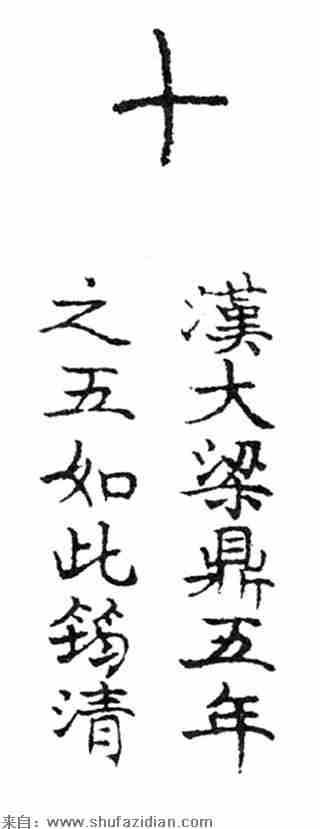 十
漢大梁鼎五年
之五如此筠清
来自：www.shufazidian.com